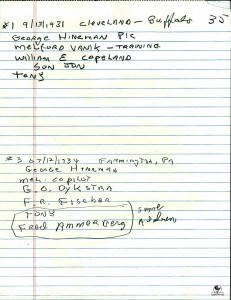 #1 9/13/1931 CLEVELAND - Buffalo 35
GEORGE HINEMAN PIC
MELFORD VANIK - TRAINING
William E COPELAND
SON JON
TONY
#3 07/12/1934 Farmington, PA
GEORGE HINEMAN
mel. copilot
G. O. DYKSTRA
F. R. Fischer
TONY
Fred Ammerberg
Same
Address